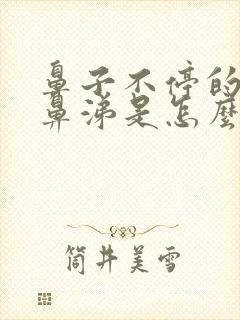 鼻子不停的
鼻涕是怎麼
筒井美雪